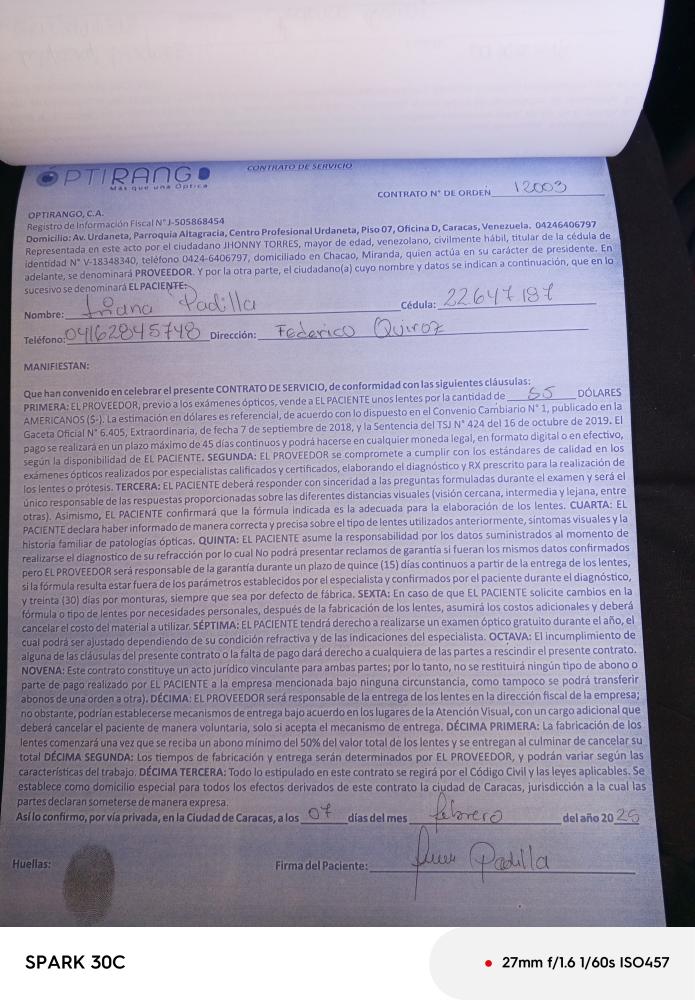 OPTIRANGO
Más que una Óptica
CONTRATO DE SERVICIO
CONTRATO N° DE ORDEN 12003
OPTIRANGO, C.A.
Registro de Información Fiscal N° J-505868454
Domicilio: Av. Urdaneta, Parroquia Altagracia, Centro Profesional Urdaneta, Piso 07, Oficina D, Caracas, Venezuela. 04246406797
Representada en este acto por el ciudadano JHONNY TORRES, mayor de edad, venezolano, civilmente hábil, titular de la cédula de
identidad N° V-18348340, teléfono 0424-6406797, domiciliado en Chacao, Miranda, quien actúa en su carácter de presidente. En
adelante, se denominará PROVEEDOR. Y por la otra parte, el ciudadano(a) cuyo nombre y datos se indican a continuación, que en lo
sucesivo se denominará EL PACIENTE:
Nombre: Padilla Cédula: 22647187
Teléfono: 04162845748 Dirección: Federico Quiroz
MANIFIESTAN:
Que han convenido en celebrar el presente CONTRATO DE SERVICIO, de conformidad con las siguientes cláusulas:
PRIMERA: EL PROVEEDOR, previo a los exámenes ópticos, vende a EL PACIENTE unos lentes por la cantidad de 55 DÓLARES
AMERICANOS ($-). La estimación en dólares es referencial, de acuerdo con lo dispuesto en el Convenio Cambiario N° 1, publicado en la
Gaceta Oficial N° 6.405, Extraordinaria, de fecha 7 de septiembre de 2018, y la Sentencia del TSJ N° 424 del 16 de octubre de 2019. El
pago se realizará en un plazo máximo de 45 días continuos y podrá hacerse en cualquier moneda legal, en formato digital o en efectivo,
según la disponibilidad de EL PACIENTE. SEGUNDA: EL PROVEEDOR se compromete a cumplir con los estándares de calidad en los
exámenes ópticos realizados por especialistas calificados y certificados, elaborando el diagnóstico y RX prescrito para la realización de
los lentes o prótesis. TERCERA: EL PACIENTE deberá responder con sinceridad a las preguntas formuladas durante el examen y será el
único responsable de las respuestas proporcionadas sobre las diferentes distancias visuales (visión cercana, intermedia y lejana, entre
otras). Asimismo, EL PACIENTE confirmará que la fórmula indicada es la adecuada para la elaboración de los lentes. CUARTA: EL
PACIENTE declara haber informado de manera correcta y precisa sobre el tipo de lentes utilizados anteriormente, síntomas visuales y la
historia familiar de patologías ópticas. QUINTA: EL PACIENTE asume la responsabilidad por los datos suministrados al momento de
realizarse el diagnostico de su refracción por lo cual No podrá presentar reclamos de garantía si fueran los mismos datos confirmados
pero EL PROVEEDOR será responsable de la garantía durante un plazo de quince (15) días continuos a partir de la entrega de los lentes,
si la fórmula resulta estar fuera de los parámetros establecidos por el especialista y confirmados por el paciente durante el diagnóstico,
y treinta (30) días por monturas, siempre que sea por defecto de fábrica. SEXTA: En caso de que EL PACIENTE solicite cambios en la
fórmula o tipo de lentes por necesidades personales, después de la fabricación de los lentes, asumirá los costos adicionales y deberá
cancelar el costo del material a utilizar. SÉPTIMA: EL PACIENTE tendrá derecho a realizarse un examen óptico gratuito durante el año, el
cual podrá ser ajustado dependiendo de su condición refractiva y de las indicaciones del especialista. OCTAVA: El incumplimiento de
alguna de las cláusulas del presente contrato o la falta de pago dará derecho a cualquiera de las partes a rescindir el presente contrato.
NOVENA: Este contrato constituye un acto jurídico vinculante para ambas partes; por lo tanto, no se restituirá ningún tipo de abono o
parte de pago realizado por EL PACIENTE a la empresa mencionada bajo ninguna circunstancia, como tampoco se podrá transferir
abonos de una orden a otra). DÉCIMA: EL PROVEEDOR será responsable de la entrega de los lentes en la dirección fiscal de la empresa;
no obstante, podrían establecerse mecanismos de entrega bajo acuerdo en los lugares de la Atención Visual, con un cargo adicional que
deberá cancelar el paciente de manera voluntaria, solo si acepta el mecanismo de entrega. DÉCIMA PRIMERA: La fabricación de los
lentes comenzará una vez que se reciba un abono mínimo del 50% del valor total de los lentes y se entregan al culminar de cancelar su
total DÉCIMA SEGUNDA: Los tiempos de fabricación y entrega serán determinados por EL PROVEEDOR, y podrán variar según las
características del trabajo. DÉCIMA TERCERA: Todo lo estipulado en este contrato se regirá por el Código Civil y las leyes aplicables. Se
establece como domicilio especial para todos los efectos derivados de este contrato la ciudad de Caracas, jurisdicción a la cual las
partes declaran someterse de manera expresa.
Así lo confirmo, por vía privada, en la Ciudad de Caracas, a los 07 días del mes febrero del año 2025
Huellas:
Firma del Paciente: Padilla
SPARK 30C
27mm f/1.6 1/60s ISO457